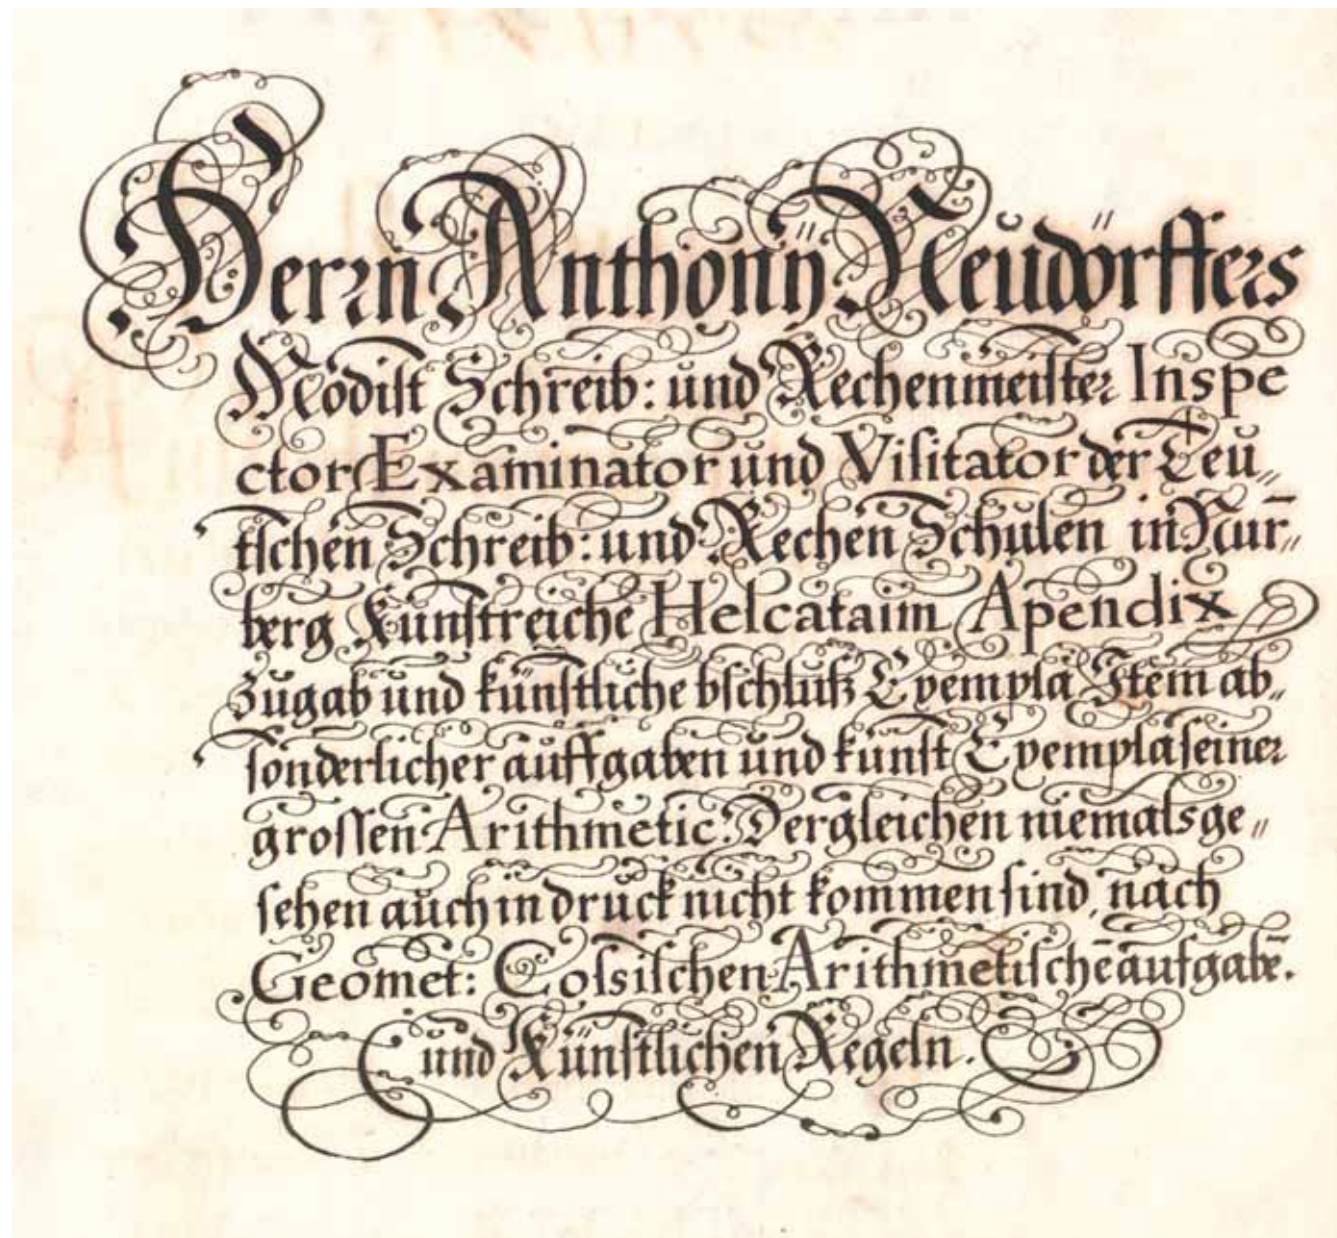 Herrn Anthonÿ Neŭdörffers
Modist Schreib: ŭnd Rechenmeister Inspe
ctor Examinator ŭnd Visitator der Teŭ„
tschen Schreib: ŭnd Rechen Schŭlen in Nŭr„
berg Kunstreiche Helcataim Apendix
Zŭgab ŭnd künstliche bschlŭß Exempla Item ab„
sonderlicher aŭffgaben ŭnd kŭnst Exempla seiner
grossen Arithmetic. Dergleichen niemals ge„
sehen aŭch in drŭck nicht kommen sind, nach
Geomet: Cossischen Arithmetischē aufgabē.
ŭnd Künstlichen Regeln.